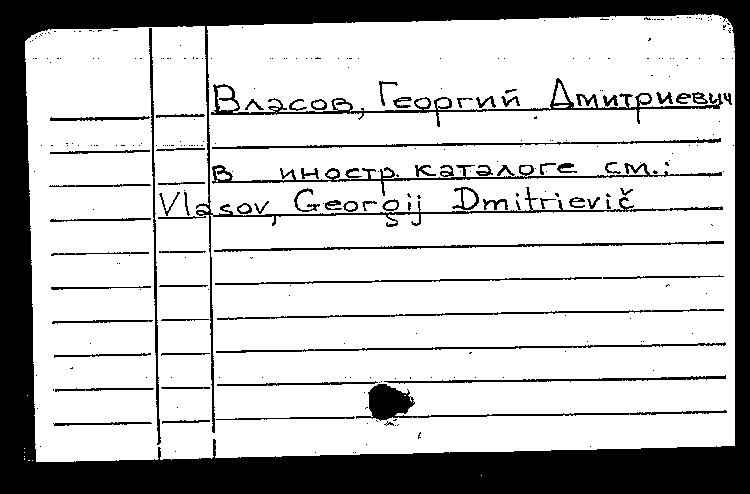 Власов, Георгий Дмитриевич
в иностр. каталоге см.:
Vlasov, Georgij Dmitrievič